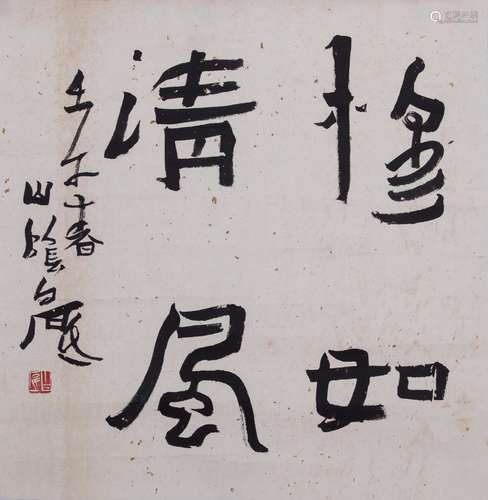 穆如
清風
壬午春
山陰白鹿